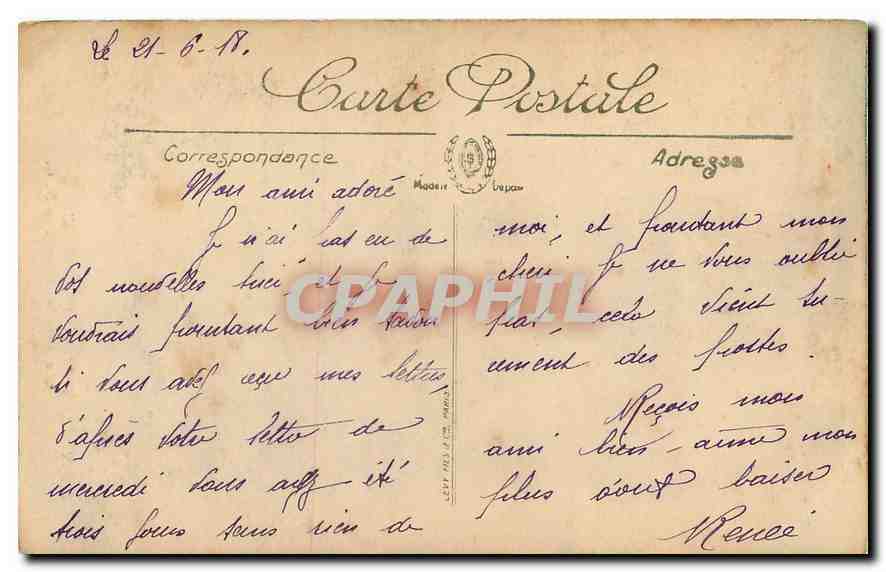 Le 21-6-18.
Carte Postale
Correspondance
Adresse
Modèle Déposé
Mon ami adoré
Je n'ai pas eu de
vos nouvelles ici, et je
voudrais pourtant bien savoir
si vous avez reçu mes lettres,
d'après votre lettre de
mercredi vous avez été
trois jours sans rien de
moi, et pourtant mon
cheri je ne vous oublie
pas, cela vient su-
rement des postes.
Reçois mon
ami bien-aimé mon
plus doux baiser
Renée
LEVY FILS & Cie, PARIS
CPAPHIL